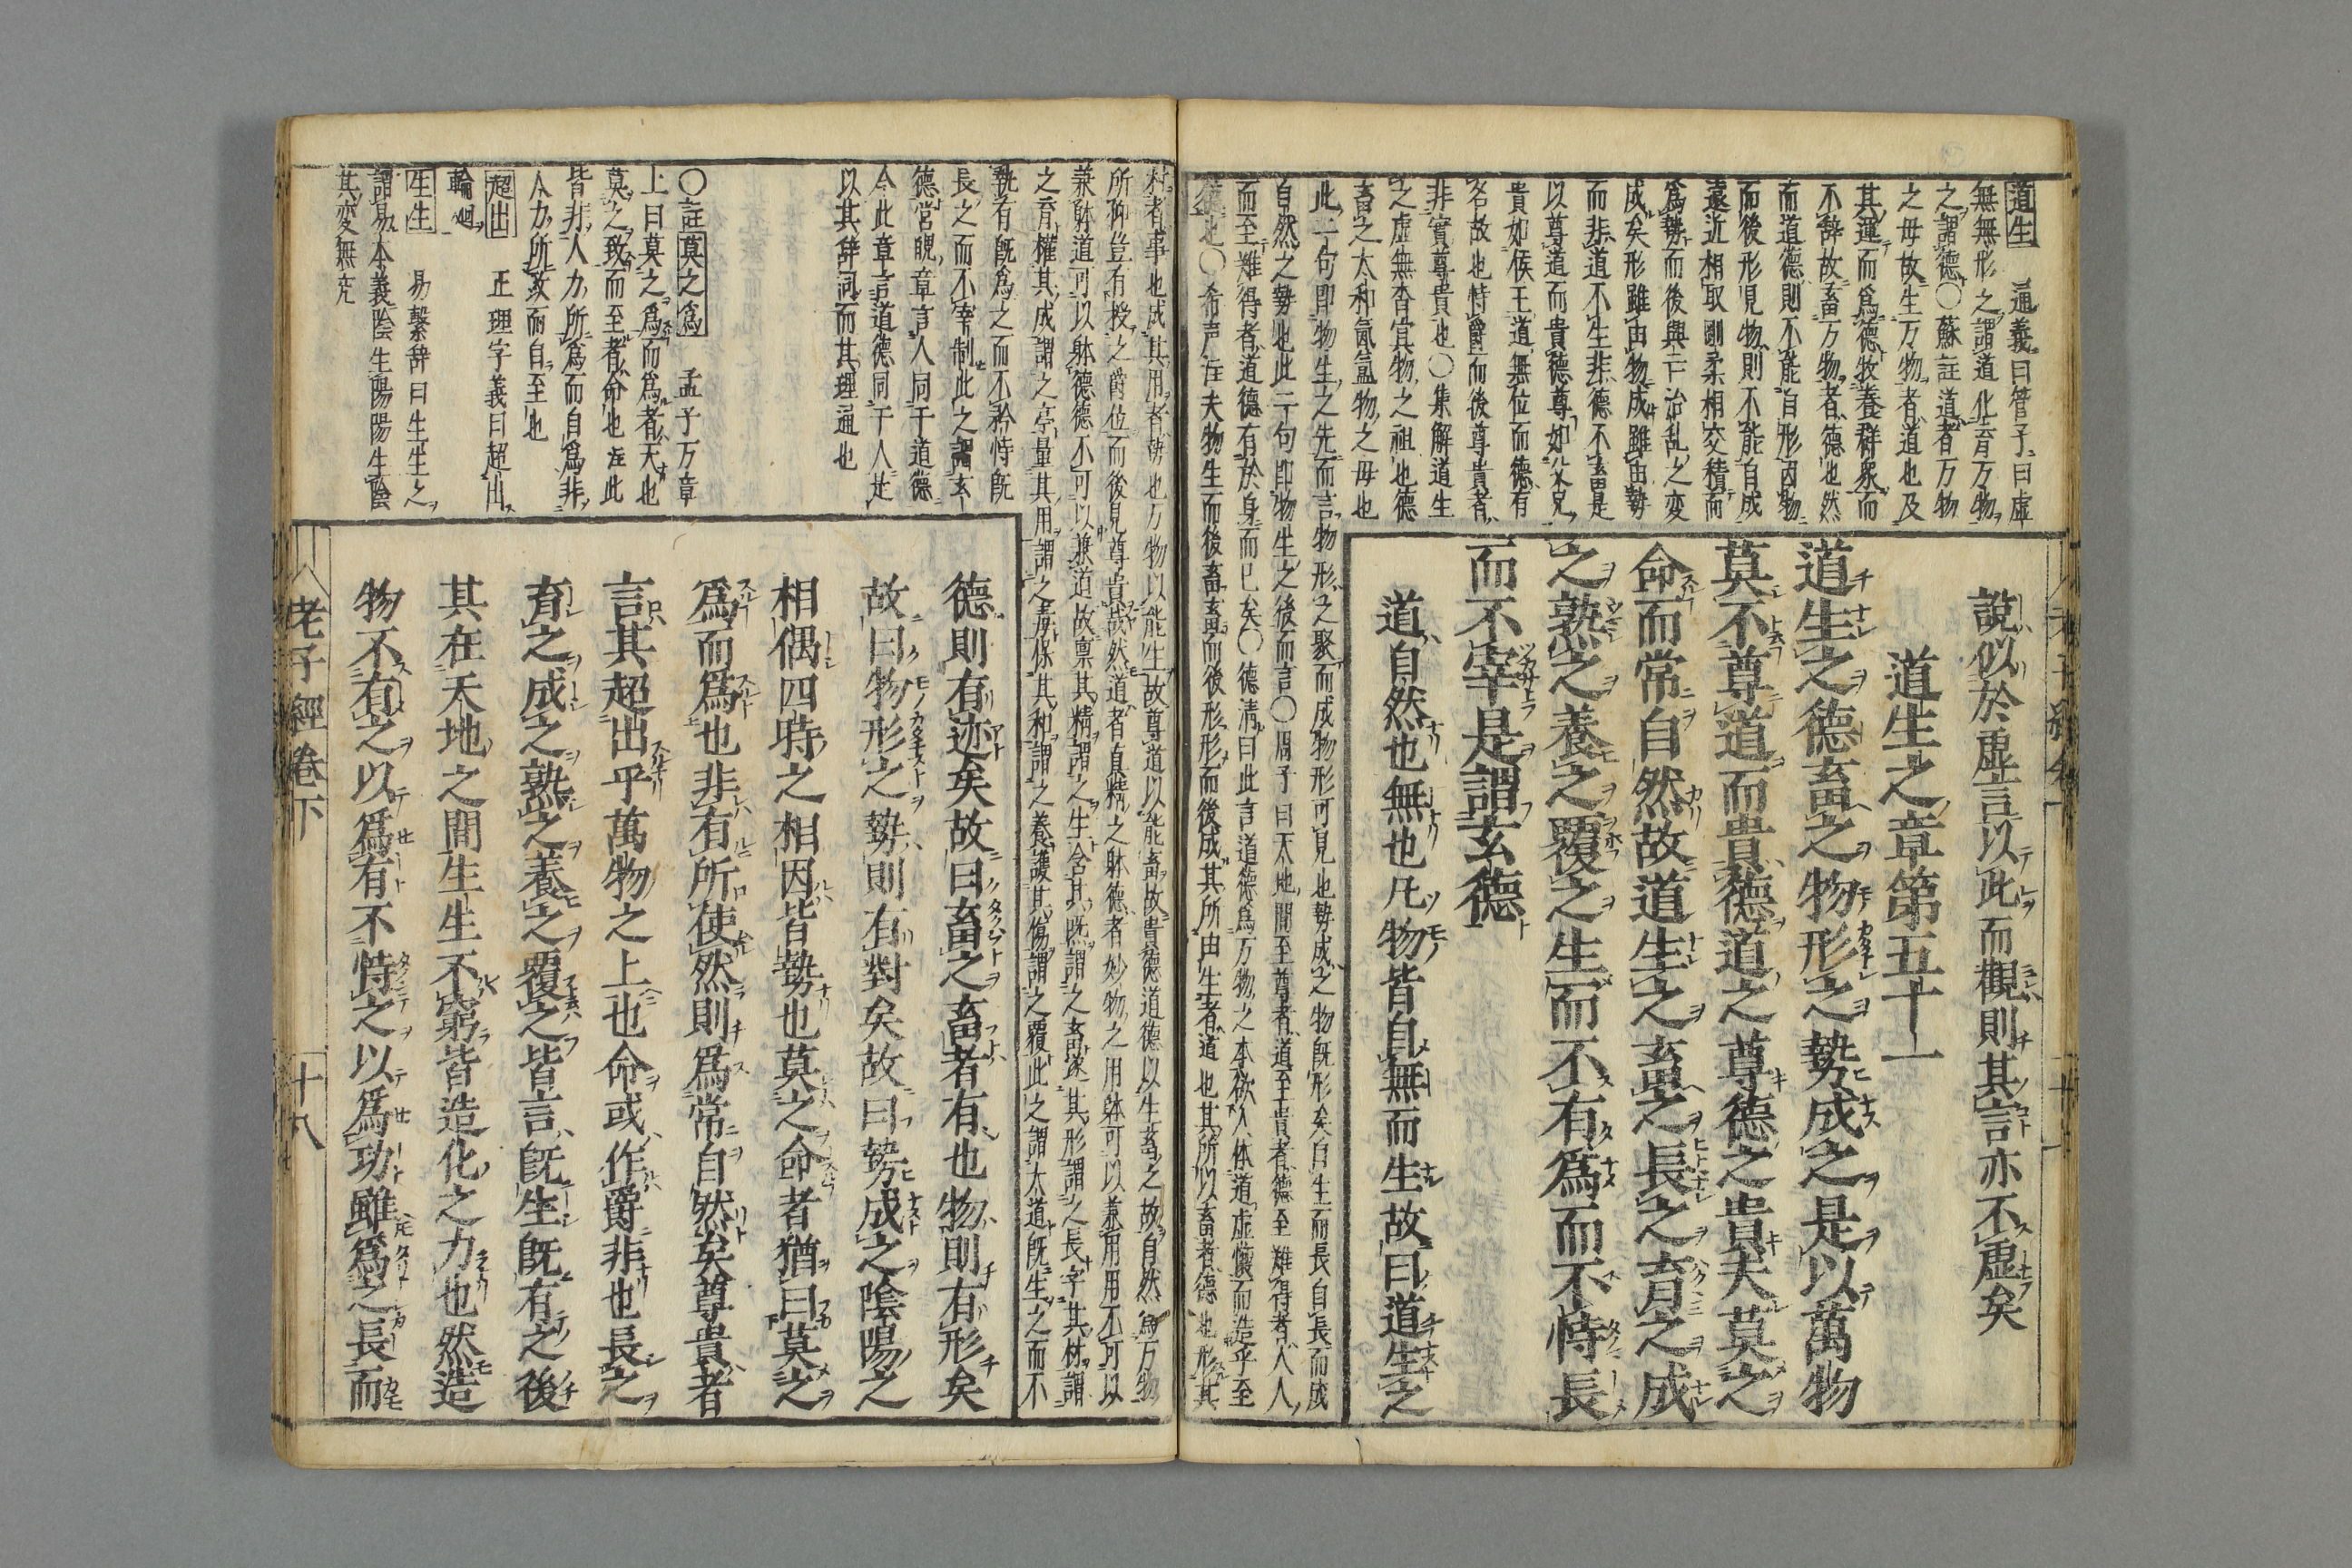 道生 通義曰管子曰虛
無無形之謂道化育万物
之謂德〇蘇註道者万物
之母故生万物者道也及
其運而爲德牧養群衆而
不辞故畜万物者德也然
而道德則不能自形因物
而後形見物則不能自成
遠近相取剛柔相交積而
爲勢而後興亡治乱之変
成矣形雖由物成雖由勢
而非道不生非德不畜是
以尊道而貴德尊如父兄
貴如侯王道無位而德有
名故也恃爵而後尊貴者
非實尊貴也〇集解道生
之虛無杳冥物之祖也德
畜之太和氤氳物之母也
此二句即物生之先而言物形之聚而成物形可見也勢成之物既形矣自生而長自長而成
自然之勢也此二句即物生之後而言〇周子曰天地間至尊者道至貴者德至難得者人人
而至難得者道德有於身而已矣〇德清曰此言道德爲万物之本欲人体道虚懷而造乎至
德也〇希声註夫物生而後畜畜而後形形而後成其所由生者道也其所以畜者德也形其
說似於虛言以此而觀則其言亦不虛矣
道生之章第五十一
道生之德畜之物形之勢成之是以萬物
莫不尊道而貴德道之尊德之貴夫莫之
命而常自然故道生之畜之長之育之成
之熟之養之覆之生而不有爲而不恃長
而不宰是謂玄德
道自然也無也凡物皆自無而生故曰道生之
材者事也成其用者勢也万物以能生故尊道以能畜故貴德道德以生畜之故自然爲万物
所仰豈有授之爵位而後見尊貴哉然道者真精之躰德者妙物之用躰可以兼用用不可以
兼躰道可以躰德德不可以兼道故稟其精謂之生含其炁謂之畜遂其形謂之長字其材謂
之育權其成謂之亭量其用謂之毒保其和謂之養護其傷謂之覆此之謂大道既生之而不
執有既爲之而不矜恃既
長之而不宰制此之謂玄
德營魄章言人同于道德
今此章言道德同于人是
以其辞詞而其理通也
〇註莫之爲 孟子万章
上曰莫之爲而爲者天也
莫之致而至者命也註此
皆非人力所爲而自爲非
人力所致而自至也
超出 正理字義曰超出
輪廻
生生 易繫辞曰生生之
謂易本義陰生陽陽生陰
其変無究
德則有迹矣故曰畜之畜者有也物則有形矣
故曰物形之勢則有對矣故曰勢成之陰陽之
相偶四時之相因皆勢也莫之命者猶曰莫之
爲而爲也非有所使然則爲常自然矣尊貴者
言其超出乎萬物之上也命或作爵非也長之
育之成之熟之養之覆之皆言既生既有之後
其在天地之間生生不窮皆造化之力也然造
物不有之以爲有不恃之以爲功雖爲之長而
老子經卷下
十八